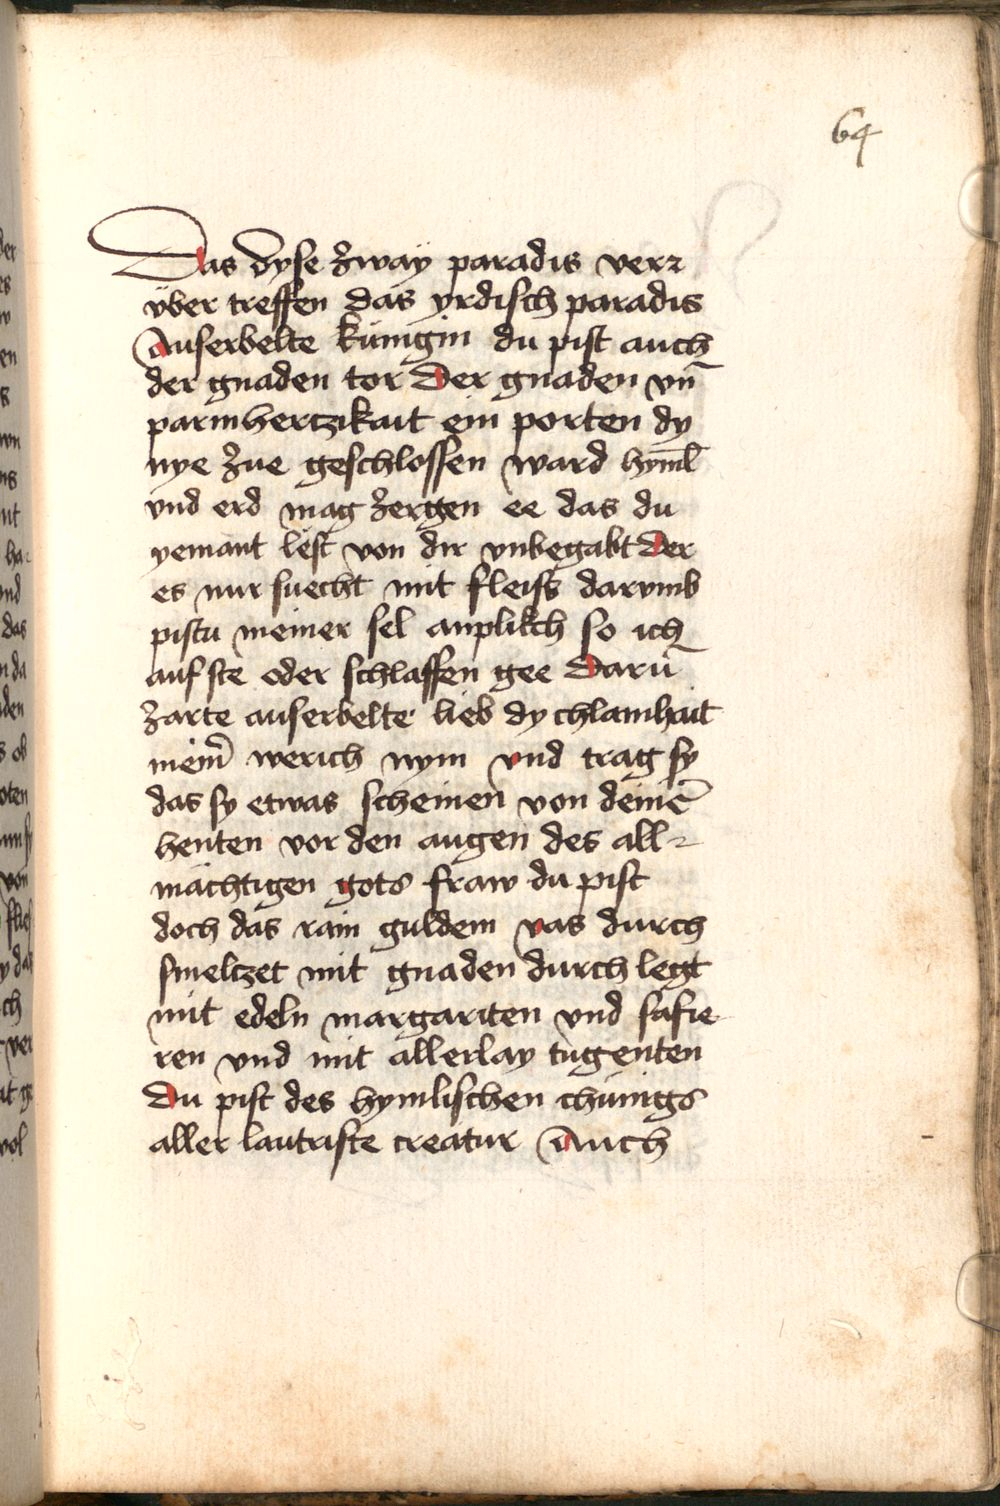 64
Das dyse zway paradis verr
über treffen das yrdisch paradis
Auserbelte künigin du pist auch
der gnaden tor Der gnaden vn̄
parmhertzikait ein porten dy
nye zue geschlossen ward hyml̄
vnd erd mag zergen ee das du
yemant lest von dir vnbegabt Der
es nur suecht mit fleiss darvmb
pistu meiner sel anplikch so ich
auf ste oder schlaffen gee Darū
zarte auserbelte lieb dy chlainhait
meinr̄ werich nym vnd trag sy
das sy etwas scheinen von deinē
henten vor den augen des all
mächtigen gots fraw du pist
doch das rain guldein vas durch
smeltzet mit gnaden durch legt
mit edeln margariten vnd safie
ren vnd mit allerlay tugenten
Du pist des hymlischen chünigs
aller lautriste creatur Auch